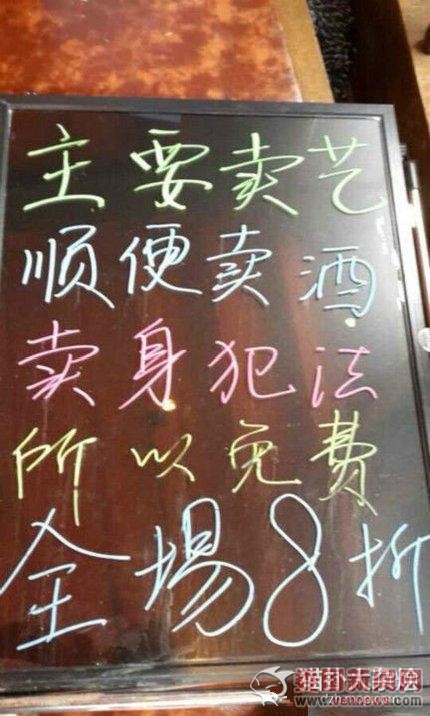 主要卖艺
顺便卖酒
卖身犯法
所以免费
全場8折
猫扑大杂烩